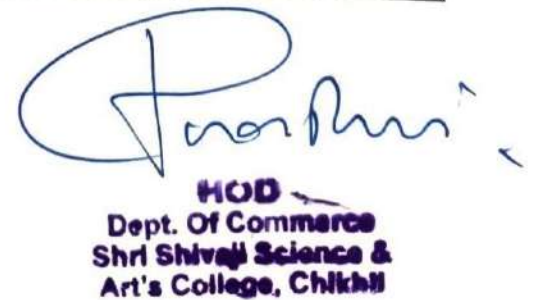 HOD
Dept. Of Commerce
Shri Shivaji Science &
Art's College, Chikhli